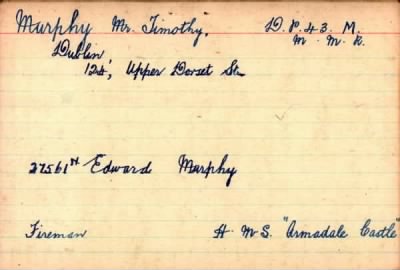 Murphy Mr. Timothy, D.P. 43. M.
M. M. R.
Dublin,
124, Upper Dorset St.
27561 N Edward Murphy
Fireman H. M. S. "Armadale Castle"